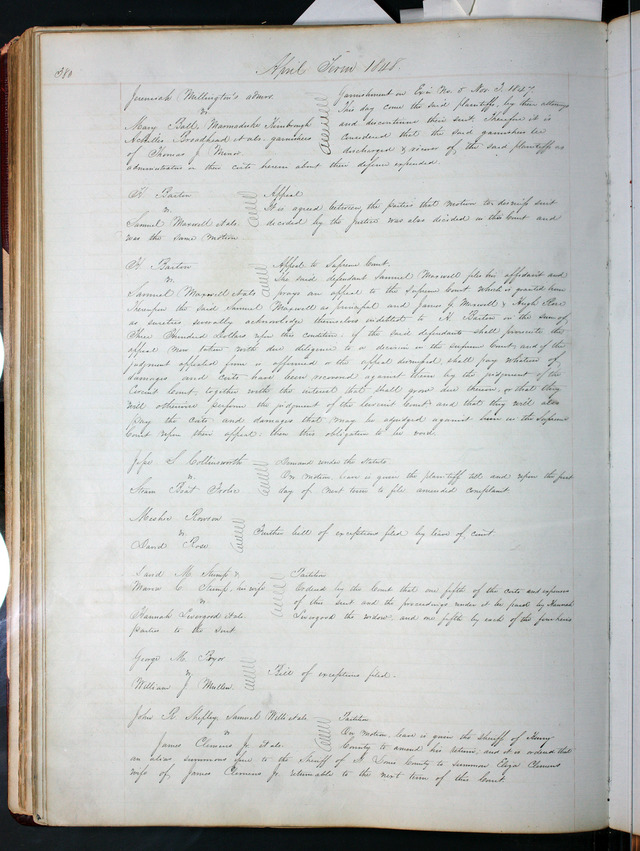 380
April Term 1848.
Jeremiah Millington's admrs.
vs
Mary Ball, Marmaduke
Achilles Broadhead et als. garnishees
of Thomas J. Minor
Garnishment on Exn No. 5 Nov. T. 1847
This day come the said plaintiffs, by their attorney
and discontinue their suit. Therefore it is
considered that the said garnishees be
discharged & recover of the said plaintiffs as
administrators as their costs herein about their defence expended.
H. Barton
vs
Samuel Maxwell et als.
Appeal
It is agreed between the parties that motion to dismiss suit
decided by the Justice was also decided in this Court and
was the same motion.
H. Barton
vs
Samuel Maxwell et als
Appeal to Supreme Court.
The said defendant Samuel Maxwell files his affidavit and
prays an appeal to the Supreme Court which is granted him
Thereupon the said Samuel Maxwell as principal and James G. Maxwell & Hugh Rose
as sureties severally acknowledge themselves indebted to H. Barton in the sum of
Three Hundred Dollars upon this condition if the said defendants shall prosecute this
appeal now taken with due diligence to a decision in the supreme Court, and if the
judgment appealed from is affirmed or the appeal dismissed, shall pay whatever of
damages and costs have been recovered against them by the judgment of the
Circuit Court, together with the interest that shall grow due thereon, or that they
will otherwise perform the judgment of the Circuit Court and that they will also
pay the costs and damages that may be adjudged against them in the Supreme
Court upon their appeal: then this obligation to be void.
S. Collinsworth
vs
Steam Boat
Demand under the Statute
On motion, leave is given the plaintiff till and upon the first
day of next term to file amended complaint
Rowson
vs
David Rose
Further bill of exceptions filed by leave of court
David M. Stump &
Maria C. Stump, his wife
vs
Hannah Livergood et als.
parties to the suit
Partition
Ordered by the Court that one fifth of the costs and expenses
of this suit and the proceedings under it be paid by Hannah
Livergood the widow, and one fifth by each of the four heirs
George M. Pryor
vs
William J. Mullen
Bill of exceptions filed.
John R. Shepley, Samuel Wells et als
vs
James Clemens Jr et als.
Partition
On motion, leave is given the sheriff of
County to amend his return; and it is ordered that
an alias summons issue to the Sheriff of St Louis County to summon Eliza Clemens
wife of James Clemens Jr returnable to the next term of this Court